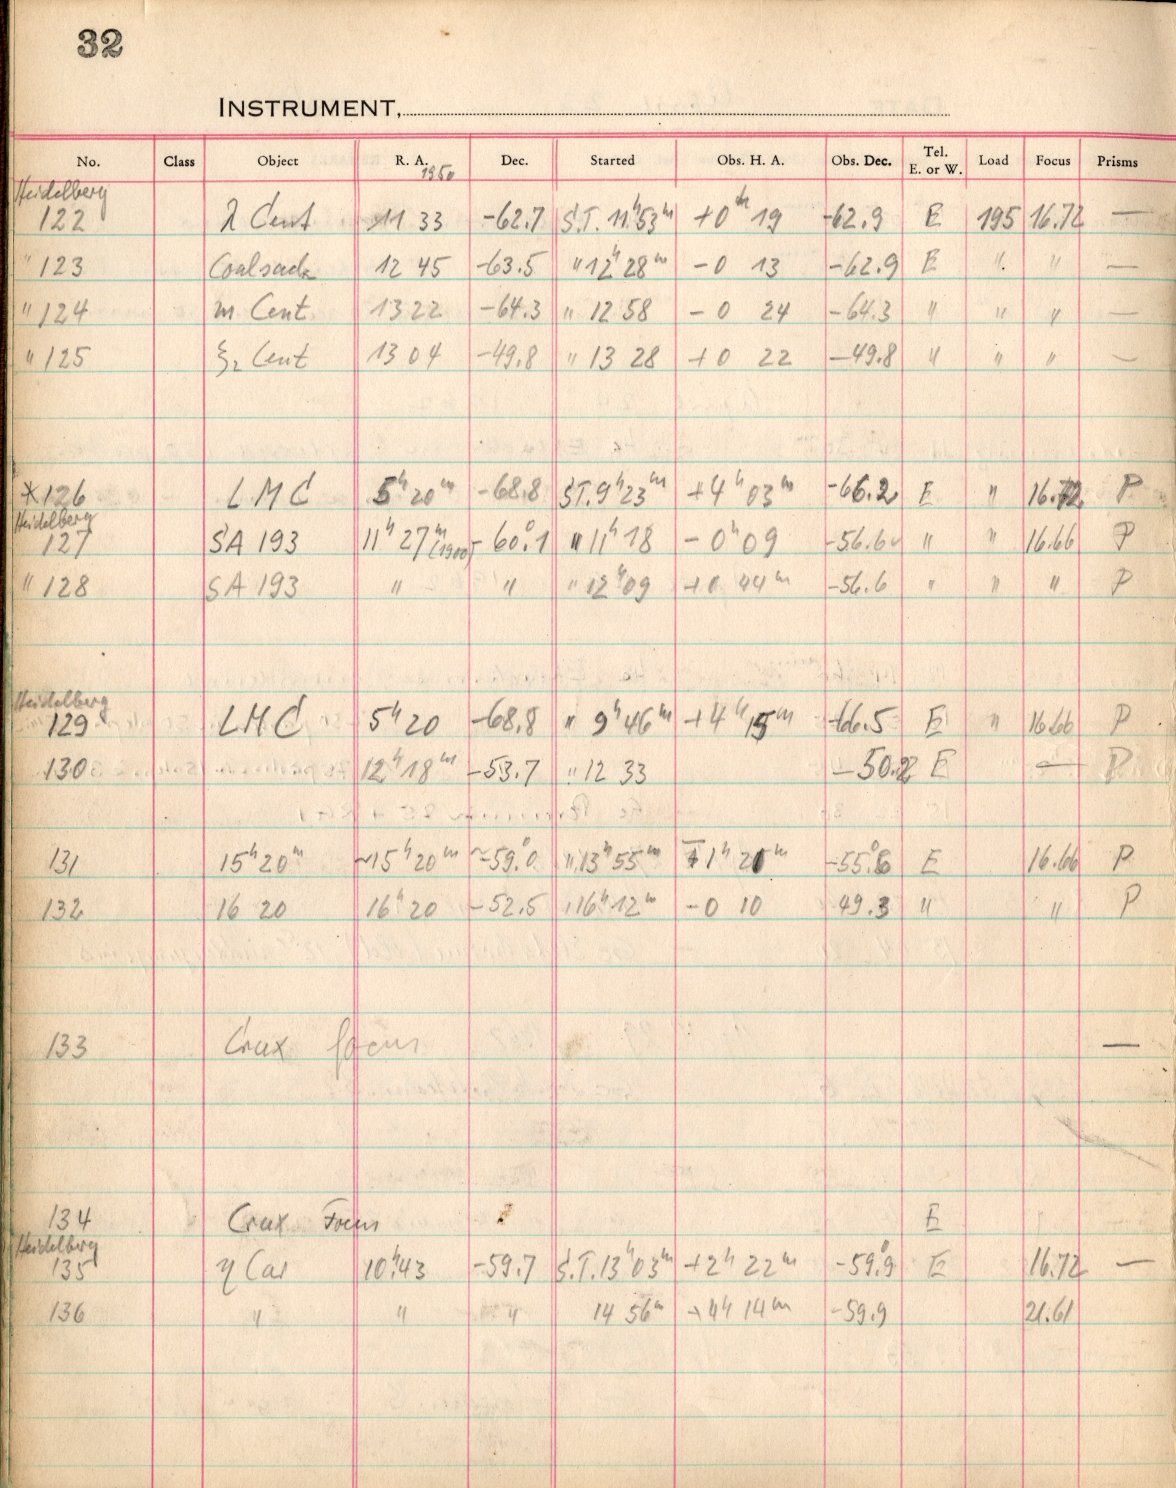 32
INSTRUMENT,
No. Class Object R. A. 1950 Dec. Started Obs. H. A. Obs. Dec. Tel. E. or W. Load Focus Prisms
Heidelberg
122 λ Cent 11 33 -62.7 S.T. 11h53m +0h 19 -62.9 E 195 16.72 —
" 123 Coalsack 12 45 -63.5 " 12h28m -0 13 -62.9 E " " —
" 124 m Cent 13 22 -64.3 " 12 58 -0 24 -64.3 " " " —
" 125 ξ2 Cent 13 04 -49.8 " 13 28 +0 22 -49.8 " " " —
*126 LMC 5h 20m -68.8 S.T. 9h23m +4h 03m -66.2 E " 16.72 P
Heidelberg
127 SA 193 11h 27m (1900) -60°.1 " 11h 18 -0h 09 -56.6 " " 16.66 P
" 128 SA 193 " " " 12h 09 +0 44m -56.6 " " " P
Heidelberg
129 LMC 5h 20 -68.8 " 9h 46m +4h 15m -66.5 E " 16.66 P
130 12h 18m -53.7 " 12 33 -50.2 E — P
131 15h 20m ~15h 20m ~-59°.0 " 13h 55m 1h 21m -55°.6 E 16.66 P
132 16 20 16h 20 -52.5 " 16h 12m -0 10 49.3 " " P
133 Crux focus —
134 Crux Focus E
Heidelberg
135 η Car 10h.43 -59.7 S.T. 13h 03m +2h 22m -59°.9 E 16.72 —
136 " " " 14 56m +4h 14m -59.9 21.61